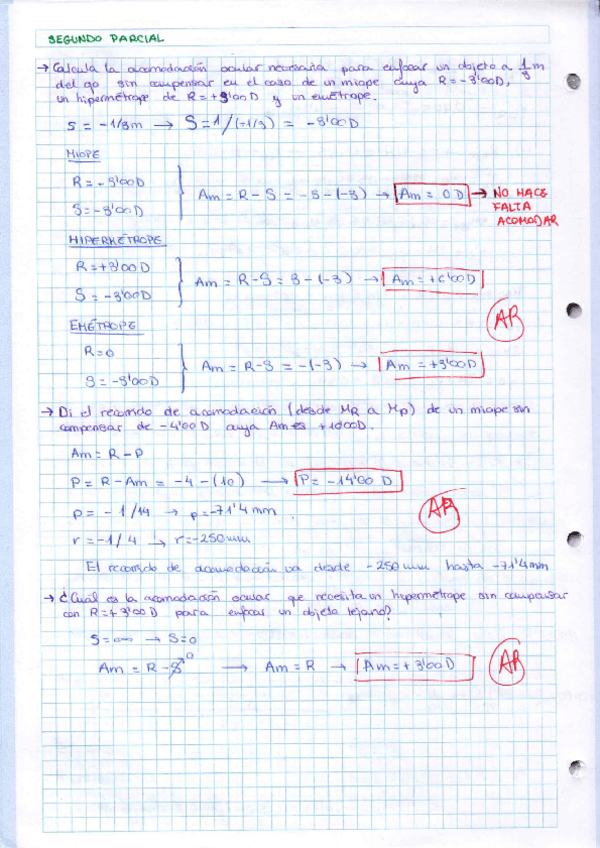 SEGUNDO PARCIAL
→ Calcula la acomodación ocular necesaria para enfocar un objeto a 1/3 m
del ojo sin compensar en el caso de un miope cuya R = -3'00 D,
un hipermétrope de R = +3'00 D y un emétrope.
s = -1/3m → S = 1/(-1/3) = -3'00 D
MIOPE
R = -3'00 D
S = -3'00 D
Am = R - S = -3 - (-3) → Am = 0 D → NO HACE FALTA ACOMODAR
HIPERMÉTROPE
R = +3'00 D
S = -3'00 D
Am = R - S = 3 - (-3) → Am = +6'00 D
AR
EMÉTROPE
R = 0
S = -3'00 D
Am = R - S = -(-3) → Am = +3'00 D
→ Di el recorrido de acomodación (desde MR a MP) de un miope sin
compensar de -4'00 D cuya Am es +10'00 D.
Am = R - P
P = R - Am = -4 - (10) → P = -14'00 D
p = -1/14 → p = -71'4 mm
AR
r = -1/4 → r = -250 mm
El recorrido de acomodación va desde -250 mm hasta -71'4 mm
→ ¿Cuál es la acomodación ocular que necesita un hipermétrope sin compensar
con R = +3'00 D para enfocar un objeto lejano?
s = ∞ → S = 0
Am = R - S 0 → Am = R → Am = +3'00 D
AR